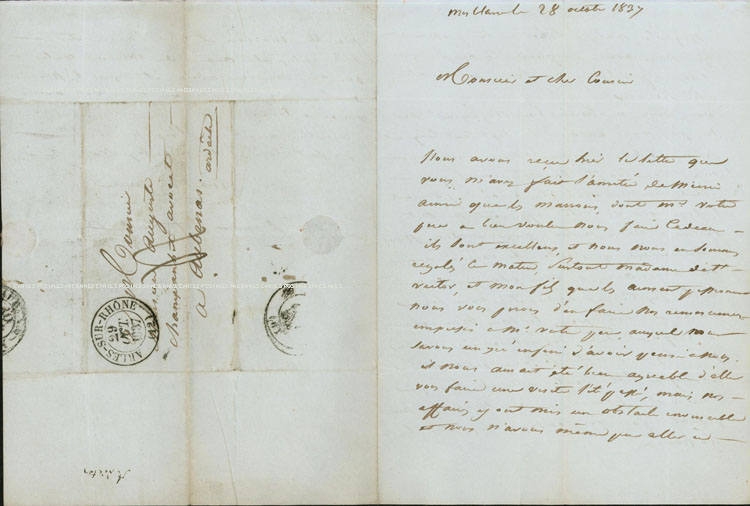 28 octobre 1837
Monsieur et cher Cousin
Nous avons reçu hier la lettre que
vous m'avez fait l'amitié de m'écrire
ainsi que les marrons, dont Mr votre
père a bien voulu nous faire Cadeau
ils sont excellens, et nous nous en sommes
régalés ce matin, surtout madame de St
victor, et mon fils qui les aiment
nous vous prions d'en faire nos remerciemens
à Mr votre père auquel nous
savons un gré infini d'avoir pensé à nous.
il nous aurait été bien agréable d'aller
vous faire une visite l'été passé, mais nos
affaires y ont mis un obstacle invincible
et nous n'avons même pu aller à
Monsieur
Auguste
Champanhet avocat
a Aubenas.
ardèche
ARLES-SUR-RHÔNE (12)
St victor